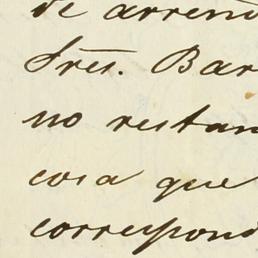 de arrend
Sres. Bar
no restan
cosa que
correspond